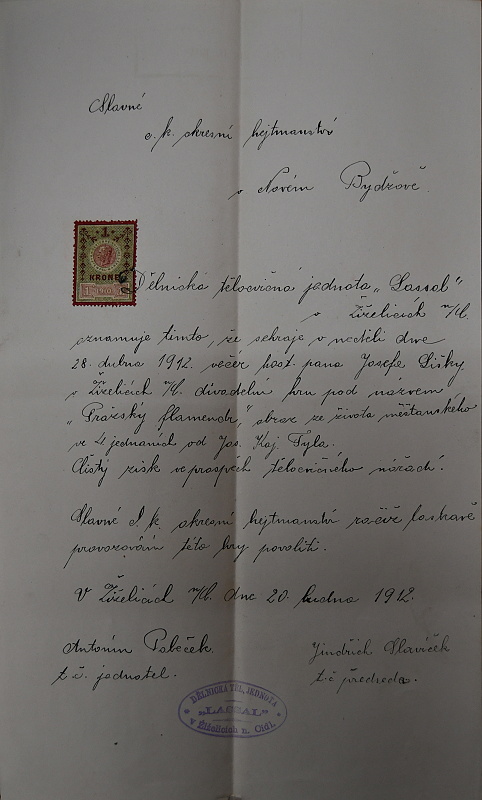 Slavné
c. k. okresní hejtmanství
v Novém Bydžově.
1
KRONE
Dělnická tělocvičná jednota „Lassal“
v Žiželicích n/C.
oznamuje tímto, že sehraje v neděli dne
28. dubna 1912. večer host. pana Josefa Lišky
v Žiželicích n/C. divadelní hru pod názvem
„Pražský flamendr,“ obraz ze života měšťanského
ve 4 jednáních od Jos. Kaj. Tyla.
Čistý zisk ve prospěch tělocvičného nářadí.
Slavné c. k. okresní hejtmanství račiž laskavě
provozování této hry povoliti.
V Žiželicích n/C. dne 20. dubna 1912.
Antonín
t. č. jednatel.
Jindřich Slavíček
t. č. předseda.
DĚLNICKÁ TĚL. JEDNOTA
„LASSAL“
v Žiželicích n. Cidl.